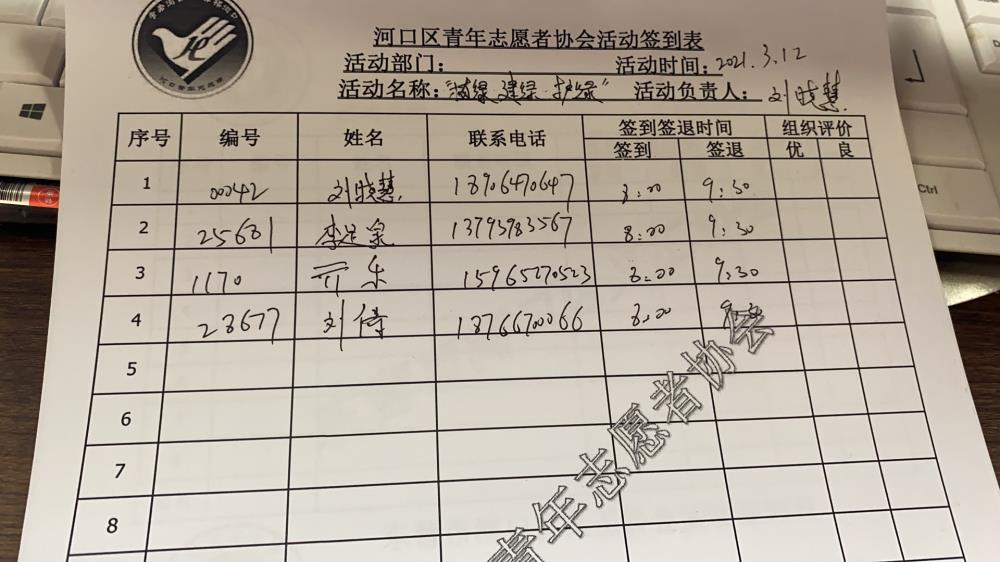 河口区青年志愿者协会活动签到表
活动部门： 活动时间：2021.3.12
活动名称："植绿 建绿 护绿" 活动负责人：刘晓慧
序号 编号 姓名 联系电话 签到签退时间 组织评价
签到 签退 优 良
1 00042 刘晓慧 18906470647 8:00 9:30
2 25681 13793983567 8:00 9:30
3 1170 15965270523 8:00 9:30
4 28677 刘倩 18766700066 8:00
5
6
7
8
青年志愿者协会